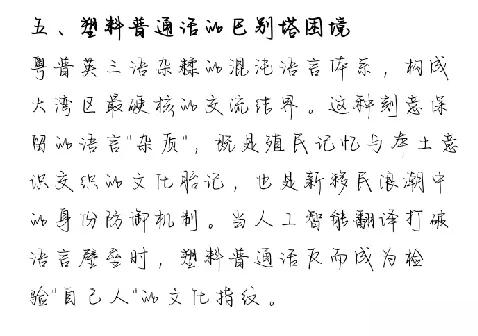 五、塑料普通话的巴别塔困境
粤普英三语杂糅的混沌语言体系，构成
大湾区最硬核的交流结界。这种刻意保
留的语言"杂质"，既是殖民记忆与本土意
识交织的文化胎记，也是新移民浪潮中
的身份防御机制。当人工智能翻译打破
语言壁垒时，塑料普通话反而成为检
验"自己人"的文化指纹。